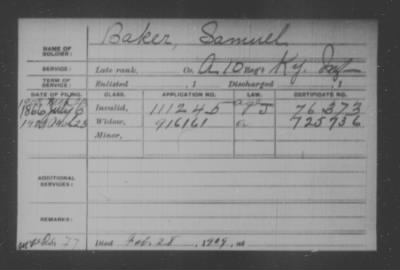 Baker, Samuel
NAME OF SOLDIER:
SERVICE: Late rank, Co. A, 10 Reg't Ky. Inf
TERM OF SERVICE Enlisted , 1 Discharged , 1
DATE OF FILING. CLASS. APPLICATION NO. LAW. CERTIFICATE NO.
1866 July 6 Invalid, 111245 76373
Widow, 916161 725736
Minor,
ADDITIONAL SERVICES:
REMARKS:
Died Feb. 28, 1909, at